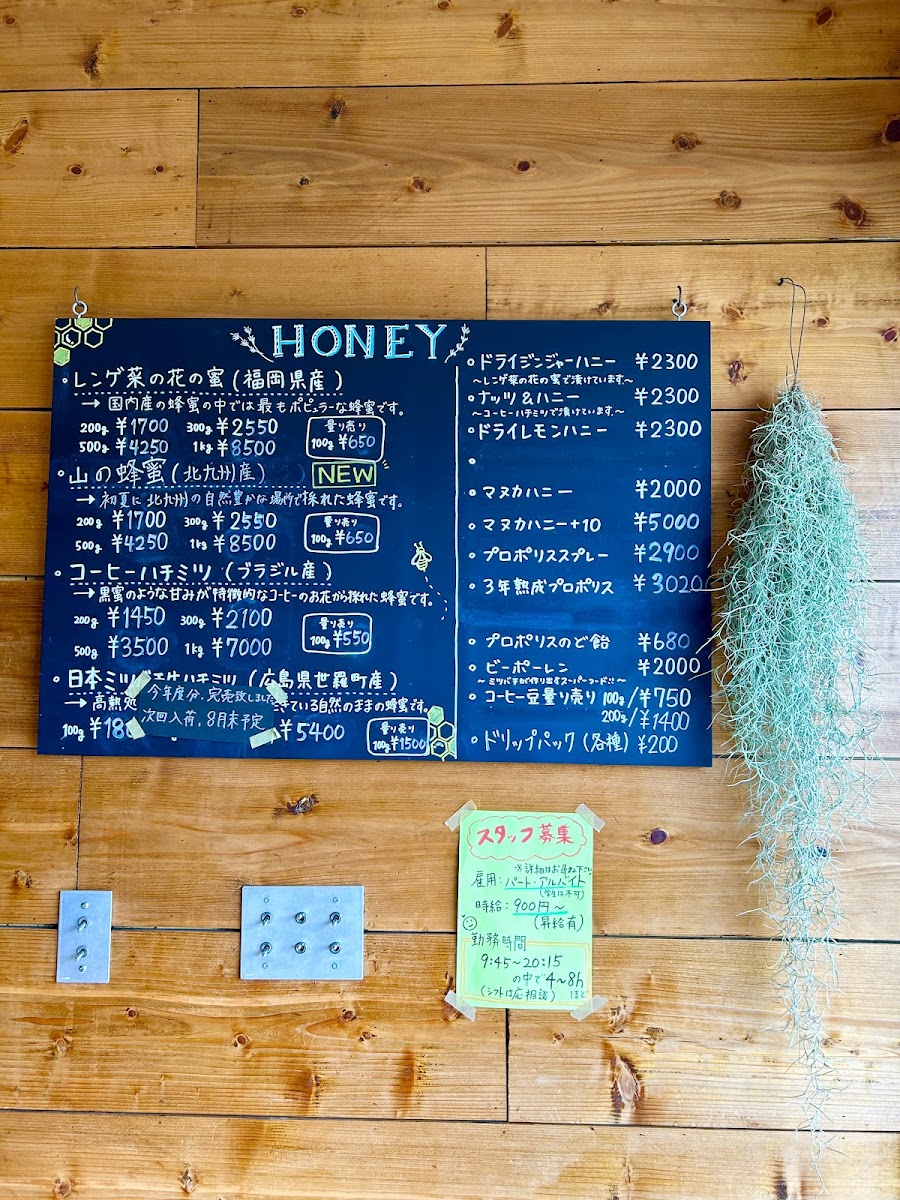 HONEY
レンゲ菜の花の蜜(福岡県産)
→国内産の蜂蜜の中では最もポピュラーな蜂蜜です。
200g ¥1700 300g ¥2550
500g ¥4250 1kg ¥8500
量り売り
100g ¥650
山の蜂蜜(北九州産)
NEW
→初夏に北九州の自然豊かな場所で採れた蜂蜜です。
200g ¥1700 300g ¥2550
500g ¥4250 1kg ¥8500
量り売り
100g ¥650
コーヒーハチミツ(ブラジル産)
→黒蜜のような甘みが特徴的なコーヒーのお花から採れた蜂蜜です。
200g ¥1450 300g ¥2100
500g ¥3500 1kg ¥7000
量り売り
100g ¥550
日本ミツバチハチミツ(広島県世羅町産)
→高熱処 きている自然のままの蜂蜜です。
今年度分、完売致しました
次回入荷、8月末予定
100g ¥18 ¥5400
量り売り
100g ¥1500
ドライジンジャーハニー ¥2300
〜レンゲ菜の花の蜜で漬けています。〜
ナッツ&ハニー ¥2300
〜コーヒーハチミツで漬けています。〜
ドライレモンハニー ¥2300
マヌカハニー ¥2000
マヌカハニー+10 ¥5000
プロポリススプレー ¥2900
3年熟成プロポリス ¥3020
プロポリスのど飴 ¥680
ビーポーレン ¥2000
〜ミツバチが作り出すスーパーフード!!〜
コーヒー豆量り売り 100g/¥750
200g/¥1400
ドリップパック(各種) ¥200
スタッフ募集
※詳細はお尋ね下さい
雇用:パート・アルバイト
(学生は不可)
時給:900円〜
(昇給有)
勤務時間
9:45〜20:15
の中で4〜8h
(シフトは応相談) ほど